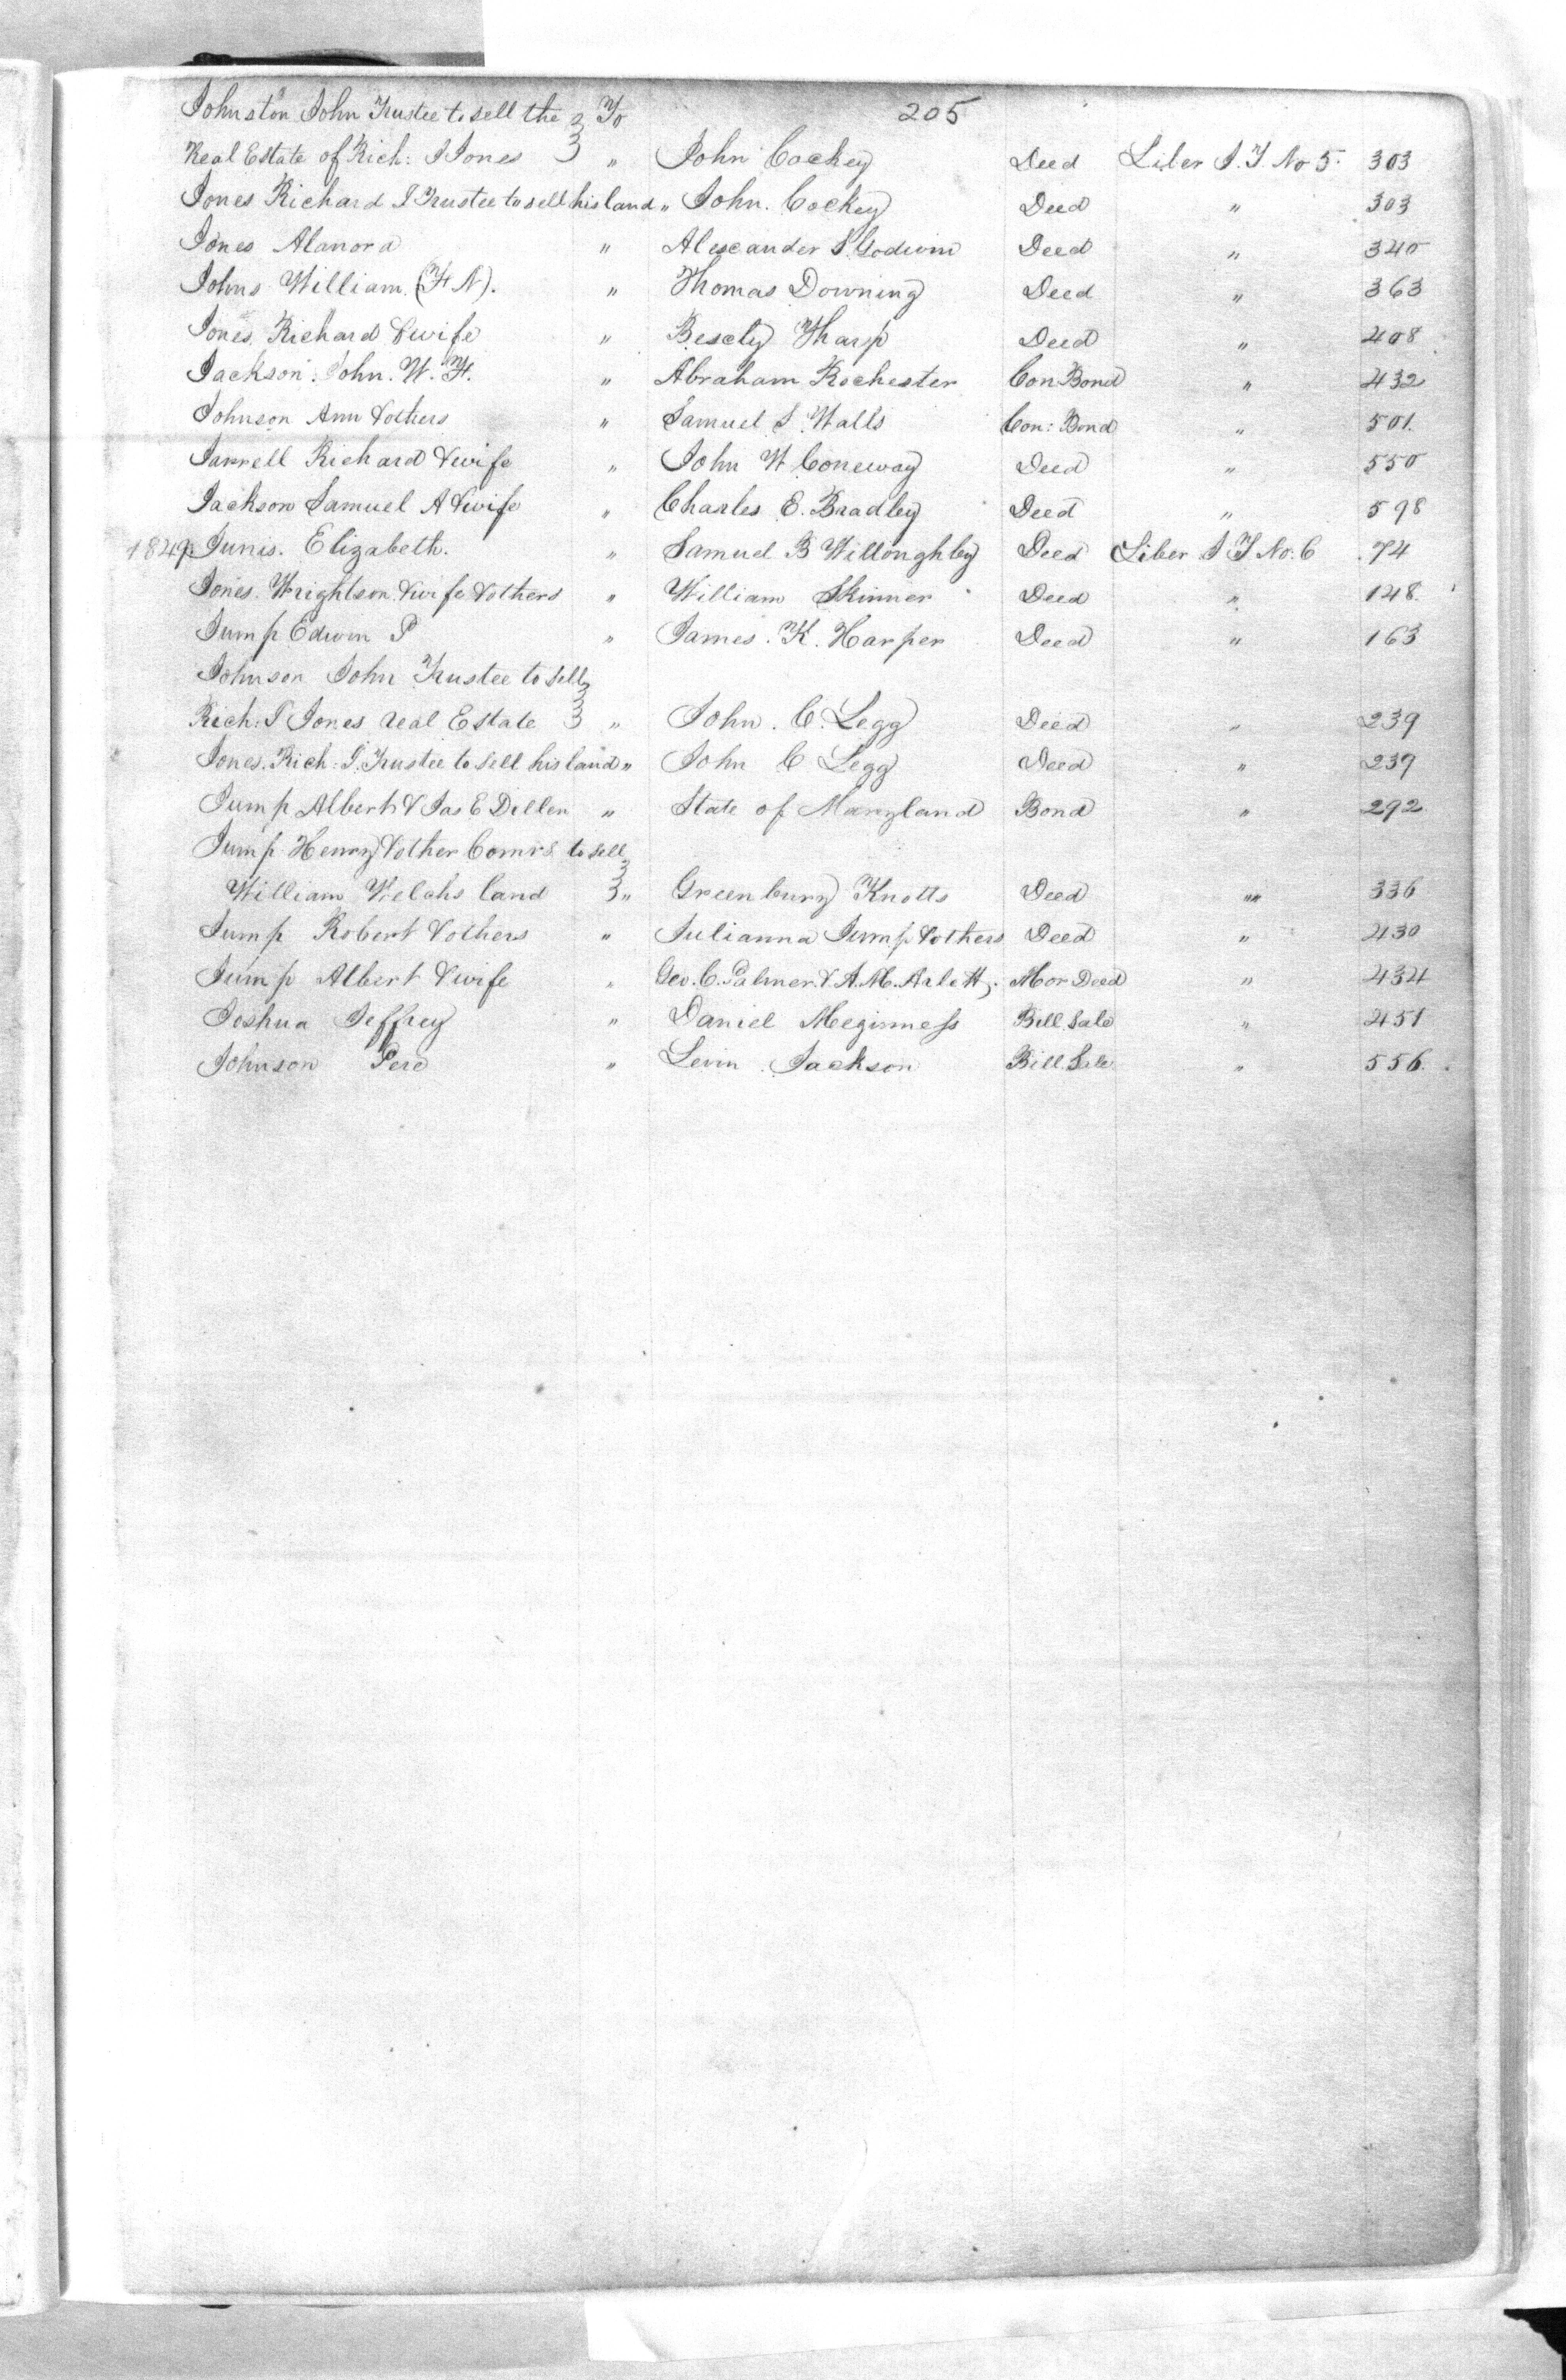 Johnston John Trustee to sell the } To 205
Real Estate of Rich: I Jones } " John Cockey Deed Liber J. T. No 5. 303
Jones Richard I Trustee to sell his land " John. Cockey Deed " 303
Jones Alanora " Alexander S. Godwin Deed " 340
Johns William (F N). " Thomas Downing Deed " 363
Jones Richard & wife " Tharp Deed " 408
Jackson. John. W. H. " Abraham Rochester Con Bond " 432
Johnson Ann & others " Samuel S. Walls Con: Bond " 501.
Jarrell Richard & wife " John W Coneway Deed " 550
Jackson Samuel A & wife " Charles E. Bradley Deed " 598
1849. Junis. Elizabeth. " Samuel B Willoughby Deed Liber J T No. 6 74
Jones. Wrightson. & wife & others " William Skinner Deed " 148.
Jump Edwin P " James. K. Harper Deed " 163
Johnson John Trustee to sell }
Rich: I Jones real Estate } " John. C. Legg Deed " 239
Jones. Rich: I. Trustee to sell his land " John C Legg Deed " 239
Jump Albert & Jas E Dillen " State of Maryland Bond " 292
Jump Henry & other Comrs to sell }
William Welchs land } " Greenbury Knotts Deed "" 336
Jump Robert & others " Julianna Jump & others Deed " 430
Jump Albert & wife " Geo. C. Palmer. & A. M. Arlett. Mor Deed " 434
Joshua Jeffrey " Daniel Meginness Bill Sale " 451
Johnson Pere " Levin Jackson Bill Sale " 556.